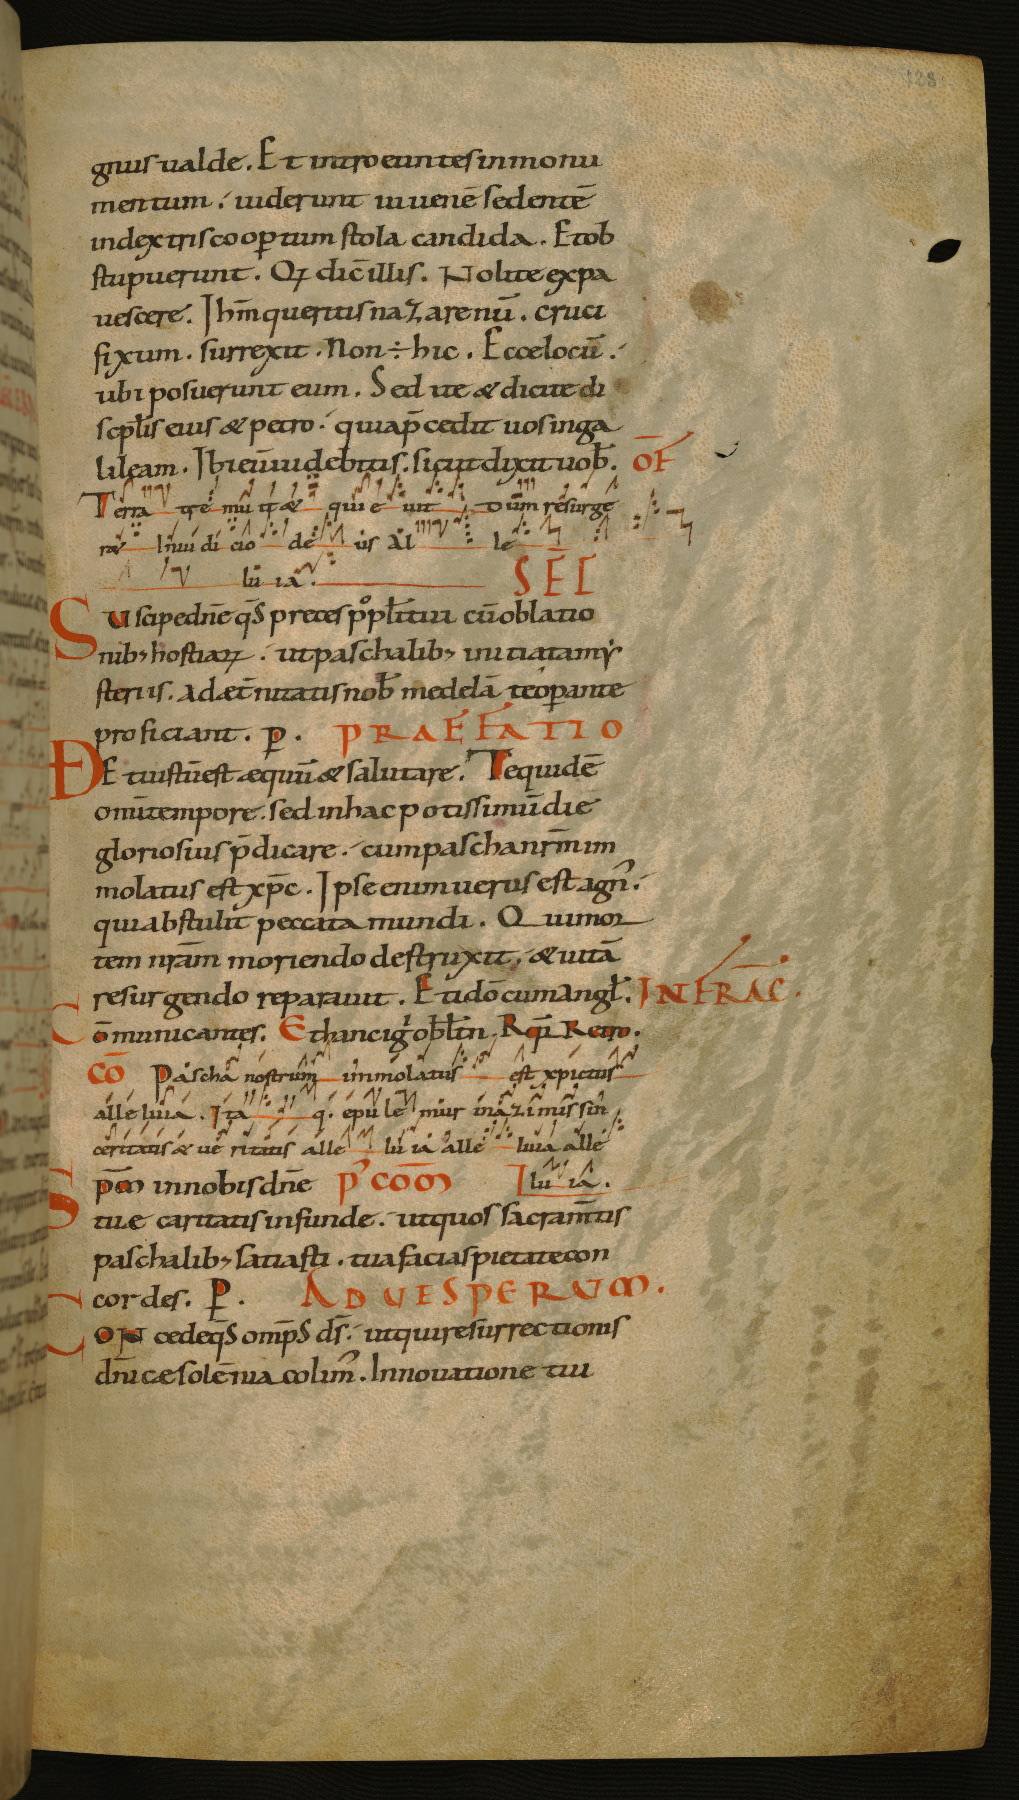 128
gnus ualde. Et introeuntes in monu
mentum. uiderunt iuuenē sedentē
in dextris coopertum stola candida. Et ob
stupuerunt. Qꝫ dic̄ illis. Nolite expa
uescere. Ihm̄ queritis nazarenū. cruci
fixum. surrexit. Non ÷ hic. Ecce locū.
ubi posuerunt eum. Sed ite & dicite di
scpl̄is eius & petro. quia p̄cedit uos in ga
lileam. Ibi eū uidebitis. sicut dixit uob̄. OF̄
Terra tre mu it & qui e uit Dum resurge
r& In iudi cio de us Al le
lu ia. SEC̄
Suscipe dn̄e qs̄ preces ppl̄i tui cū oblatio
nibꝫ hostiaꝝ. ut paschalibꝫ initiata my
steriis. ad æt̄nitatis nob̄ medelā te oꝑante
proficiant. ꝑ. PRAEFATIO
UE t iustū est æquū & salutare. Te quidē
omī tempore. sed in hac potissimū die
gloriosius p̄dicare. cum pascha nr̄m im
molatus est xp̄c. Ipse enim uerus est agn᷒.
qui abstulit peccata mundi. Qui mor
tem nr̄am moriendo destruxit. & uitā
resurgendo reparauit. Et idō cum angl̄. INFRAC̄.
Cōmunicantes. Et hanc ig̅ obl̄tn. Rq̄ Retro.
CŌ Pascha nostrum immolatus est xpictus
alle luia. Ita q. epu le mur in azimis sin
ceritatis & ue ritatis alle lu ia alle luia alle
Spm̄ in nobis dn̄e P᷒ COM̄ lu ia.
tue caritatis infunde. ut quos sacram̄tis
paschalibꝫ satiasti. tua facias pietate con
cordes. ꝑ. AD UESPERUM.
CON cede qs̄ omps̄ ds̄. ut qui resurrectionis
dn̄icæ solēnia colim᷒. Innouatione tui